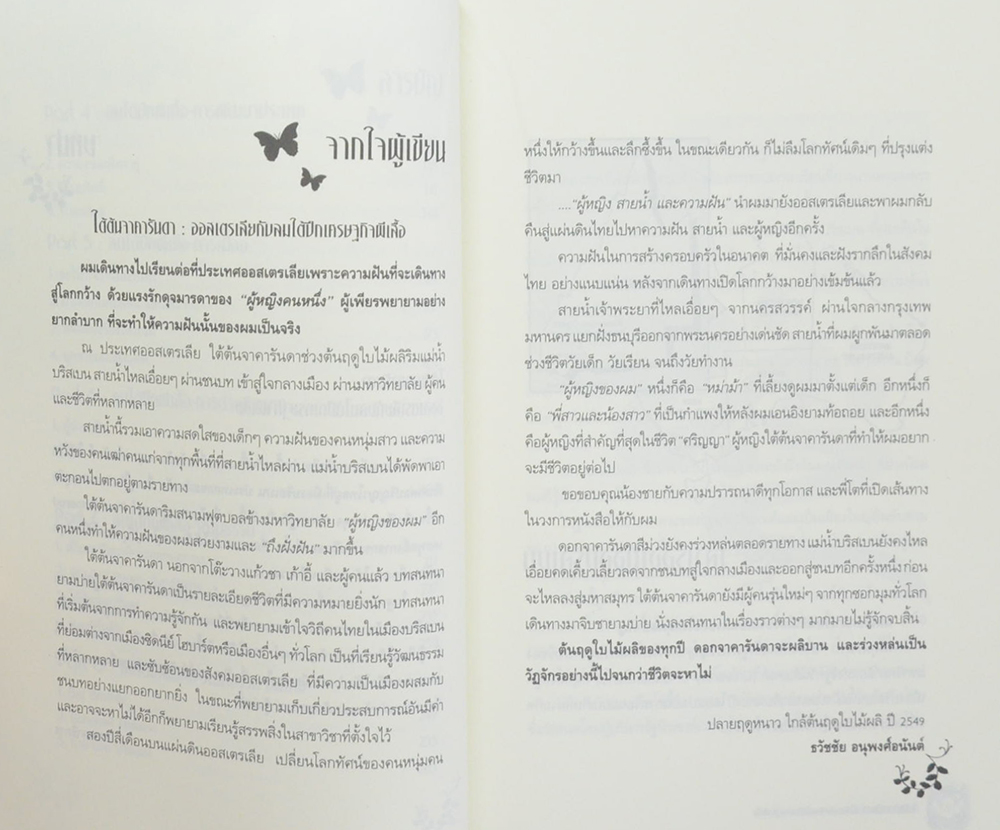 จากใจผู้เขียน
ใต้ต้นจาคารันดา : ออสเตรเลียกับลมใต้ปีกเศรษฐกิจผีเสื้อ
ผมเดินทางไปเรียนต่อที่ประเทศออสเตรเลียเพราะความฝันที่จะเดินทาง
สู่โลกกว้าง ด้วยแรงรักดุจมารดาของ "ผู้หญิงคนหนึ่ง" ผู้เพียรพยายามอย่าง
ยากลำบาก ที่จะทำให้ความฝันนั้นของผมเป็นจริง
ณ ประเทศออสเตรเลีย ใต้ต้นจาคารันดาช่วงต้นฤดูใบไม้ผลิริมแม่น้ำ
บริสเบน สายน้ำไหลเอื่อยๆ ผ่านชนบท เข้าสู่ใจกลางเมือง ผ่านมหาวิทยาลัย ผู้คน
และชีวิตที่หลากหลาย
สายน้ำนี้รวมเอาความสดใสของเด็กๆ ความฝันของคนหนุ่มสาว และความ
หวังของคนเฒ่าคนแก่จากทุกพื้นที่ที่สายน้ำไหลผ่าน แม่น้ำบริสเบนได้พัดพาเอา
ตะกอนไปตกอยู่ตามรายทาง
ใต้ต้นจาคารันดาริมสนามฟุตบอลข้างมหาวิทยาลัย "ผู้หญิงของผม" อีก
คนหนึ่งทำให้ความฝันของผมสวยงามและ "ถึงฝั่งฝัน" มากขึ้น
ใต้ต้นจาคารันดา นอกจากโต๊ะวางแก้วชา เก้าอี้ และผู้คนแล้ว บทสนทนา
ยามบ่ายใต้ต้นจาคารันดาเป็นรายละเอียดชีวิตที่มีความหมายยิ่งนัก บทสนทนา
ที่เริ่มต้นจากการทำความรู้จักกัน และพยายามเข้าใจวิถีคนไทยในเมืองบริสเบน
ที่ย่อมต่างจากเมืองซิดนีย์ โฮบาร์ตหรือเมืองอื่นๆ ทั่วโลก เป็นที่เรียนรู้วัฒนธรรม
ที่หลากหลาย และซับซ้อนของสังคมออสเตรเลีย ที่มีความเป็นเมืองผสมกับ
ชนบทอย่างแยกออกยากยิ่ง ในขณะที่พยายามเก็บเกี่ยวประสบการณ์อันมีค่า
และอาจจะหาไม่ได้อีกก็พยายามเรียนรู้สรรพสิ่งในสาขาวิชาที่ตั้งใจไว้
สองปีสี่เดือนบนแผ่นดินออสเตรเลีย เปลี่ยนโลกทัศน์ของคนหนุ่มคน
หนึ่งให้กว้างขึ้นและลึกซึ้งขึ้น ในขณะเดียวกัน ก็ไม่ลืมโลกทัศน์เดิมๆ ที่ปรุงแต่ง
ชีวิตมา
...."ผู้หญิง สายน้ำ และความฝัน" นำผมมายังออสเตรเลียและพาผมกลับ
คืนสู่แผ่นดินไทยไปหาความฝัน สายน้ำ และผู้หญิงอีกครั้ง
ความฝันในการสร้างครอบครัวในอนาคต ที่มั่นคงและฝังรากลึกในสังคม
ไทย อย่างแนบแน่น หลังจากเดินทางเปิดโลกกว้างมาอย่างเข้มข้นแล้ว
สายน้ำเจ้าพระยาที่ไหลเอื่อยๆ จากนครสวรรค์ ผ่านใจกลางกรุงเทพ
มหานคร แยกฝั่งธนบุรีออกจากพระนครอย่างเด่นชัด สายน้ำที่ผมผูกพันมาตลอด
ช่วงชีวิตวัยเด็ก วัยเรียน จนถึงวัยทำงาน
"ผู้หญิงของผม" หนึ่งก็คือ "หม่าม้า" ที่เลี้ยงดูผมมาตั้งแต่เด็ก อีกหนึ่งก็
คือ "พี่สาวและน้องสาว" ที่เป็นกำแพงให้หลังผมเอนอิงยามท้อถอย และอีกหนึ่ง
คือผู้หญิงที่สำคัญที่สุดในชีวิต "ศริญญา" ผู้หญิงใต้ต้นจาคารันดาที่ทำให้ผมอยาก
จะมีชีวิตอยู่ต่อไป
ขอขอบคุณน้องชายกับความปรารถนาดีทุกโอกาส และพี่โตที่เปิดเส้นทาง
ในวงการหนังสือให้กับผม
ดอกจาคารันดาสีม่วงยังคงร่วงหล่นตลอดรายทาง แม่น้ำบริสเบนยังคงไหล
เอื่อยคดเคี้ยวเลี้ยวลดจากชนบทสู่ใจกลางเมืองและออกสู่ชนบทอีกครั้งหนึ่ง ก่อน
จะไหลลงสู่มหาสมุทร ใต้ต้นจาคารันดายังมีผู้คนรุ่นใหม่ๆ จากทุกซอกมุมทั่วโลก
เดินทางมาจิบชายามบ่าย นั่งลงสนทนาในเรื่องราวต่างๆ มากมายไม่รู้จักจบสิ้น
ต้นฤดูใบไม้ผลิของทุกปี ดอกจาคารันดาจะผลิบาน และร่วงหล่นเป็น
วัฏจักรอย่างนี้ไปจนกว่าชีวิตจะหาไม่
ปลายฤดูหนาว ใกล้ต้นฤดูใบไม้ผลิ ปี 2549
ธวัชชัย อนุพงศ์อนันต์